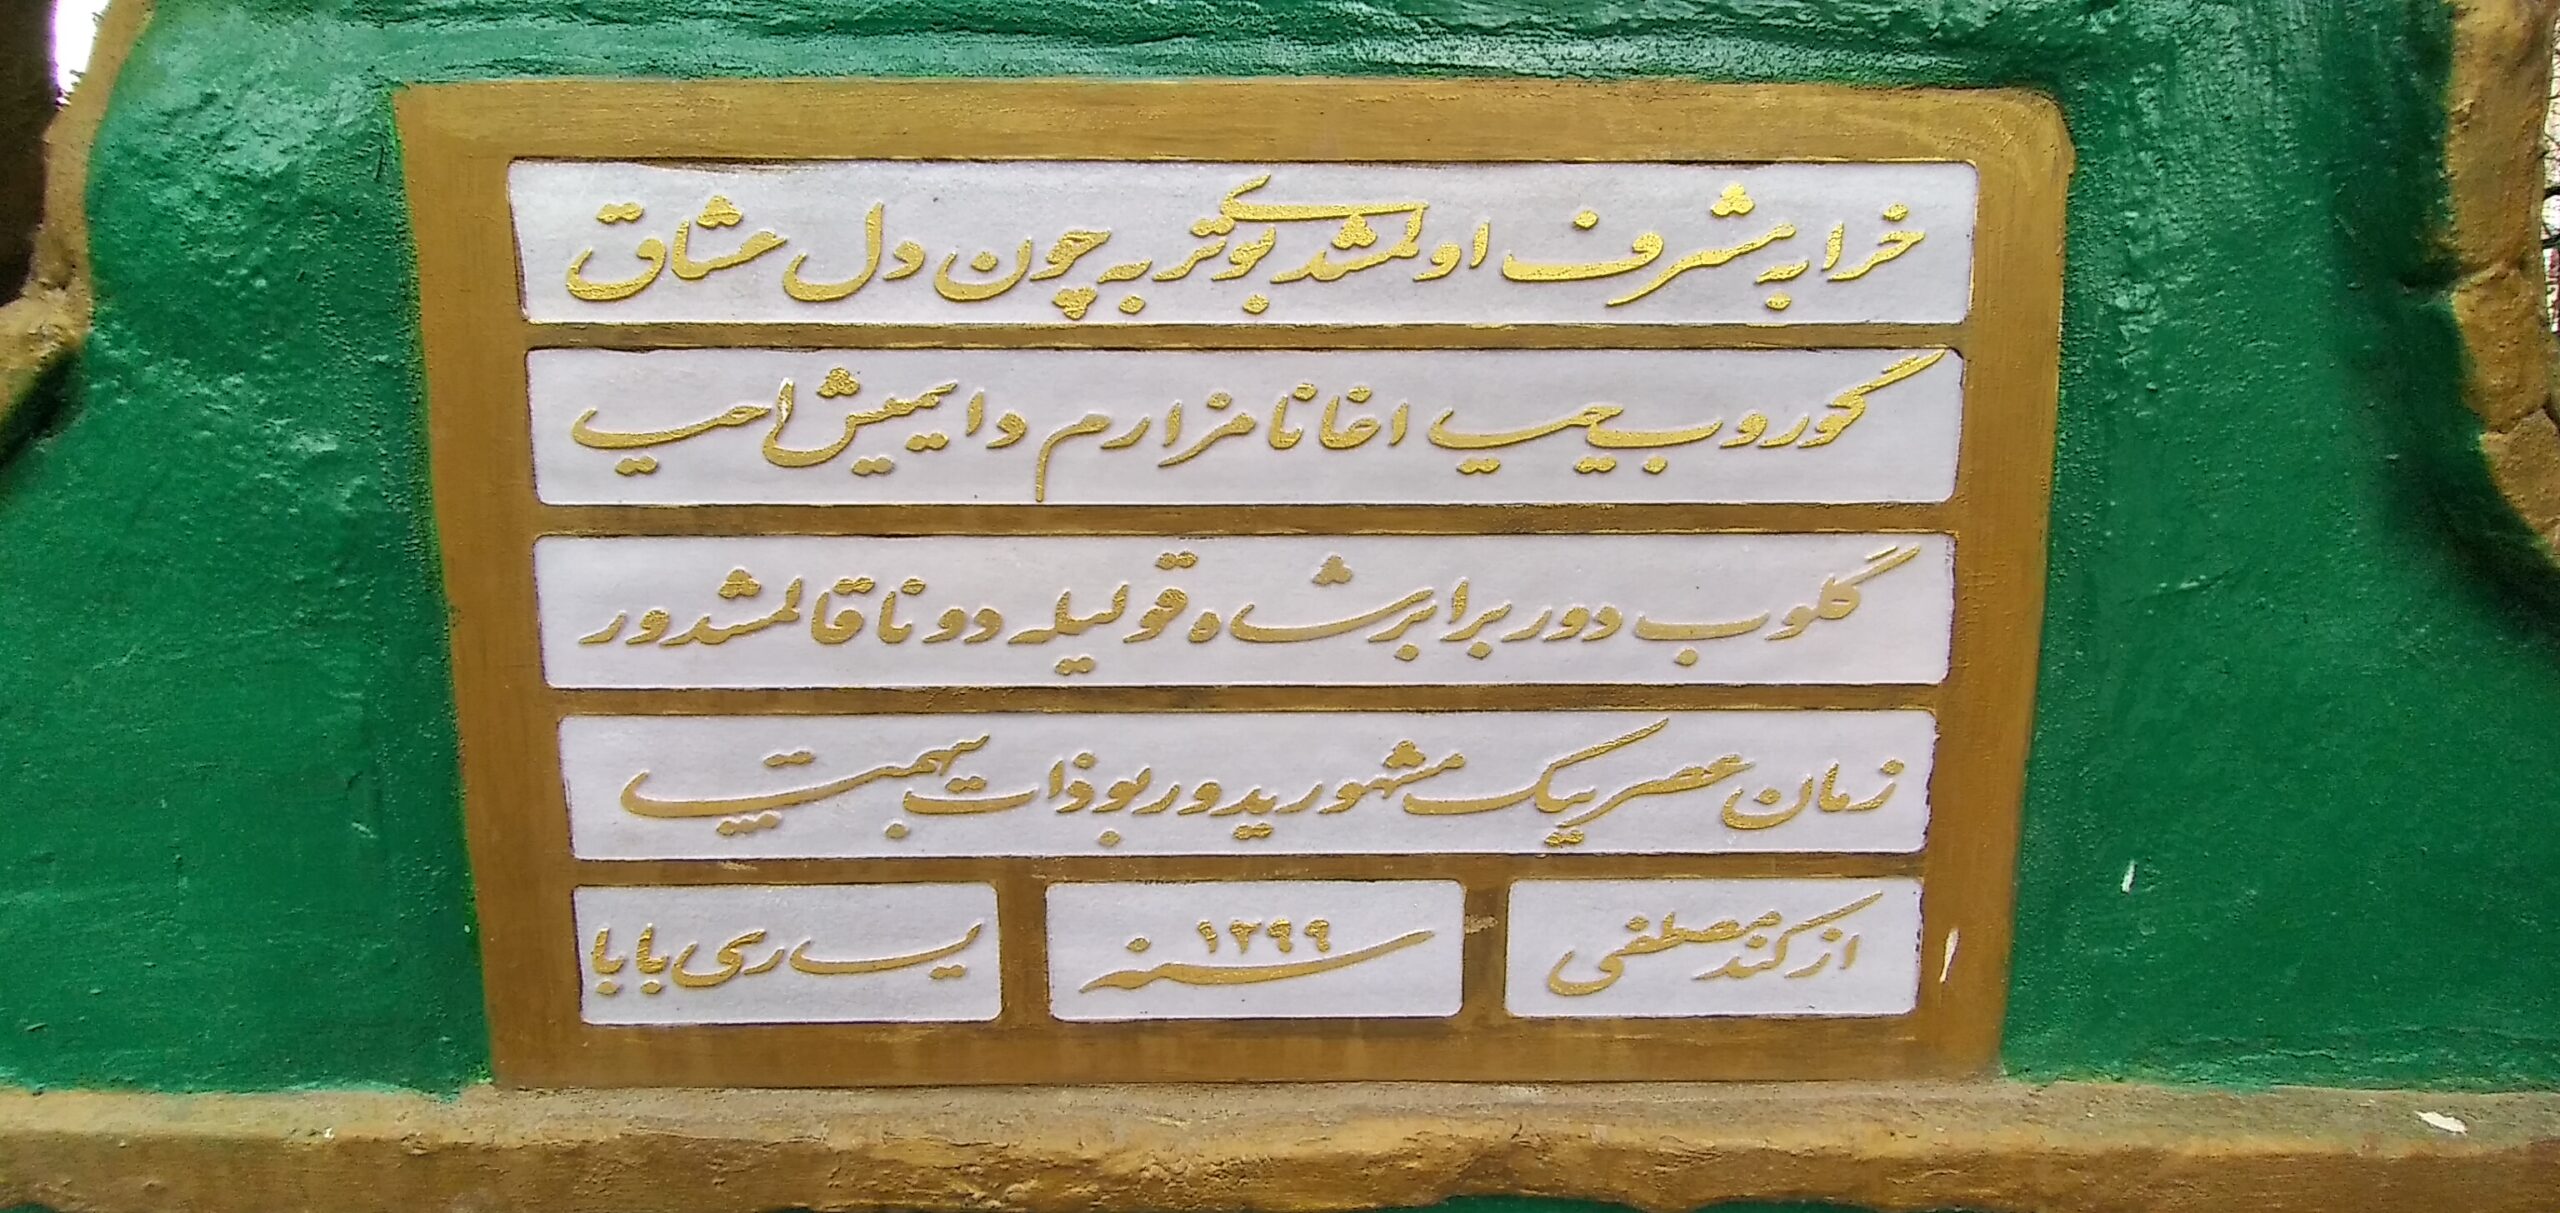 خرابه مشرف اولمشدی بوتربه چون دل عشاق
گوروب حیی اخانا مزارم دایمیش احیی
گلوب دور برابر شاه قولیله دوناقالمشدور
زمان عصر بیک مشهور یدور بوذات بیهمت
از کند مصطفی
سنه ١٢٩٩
یساری بابا